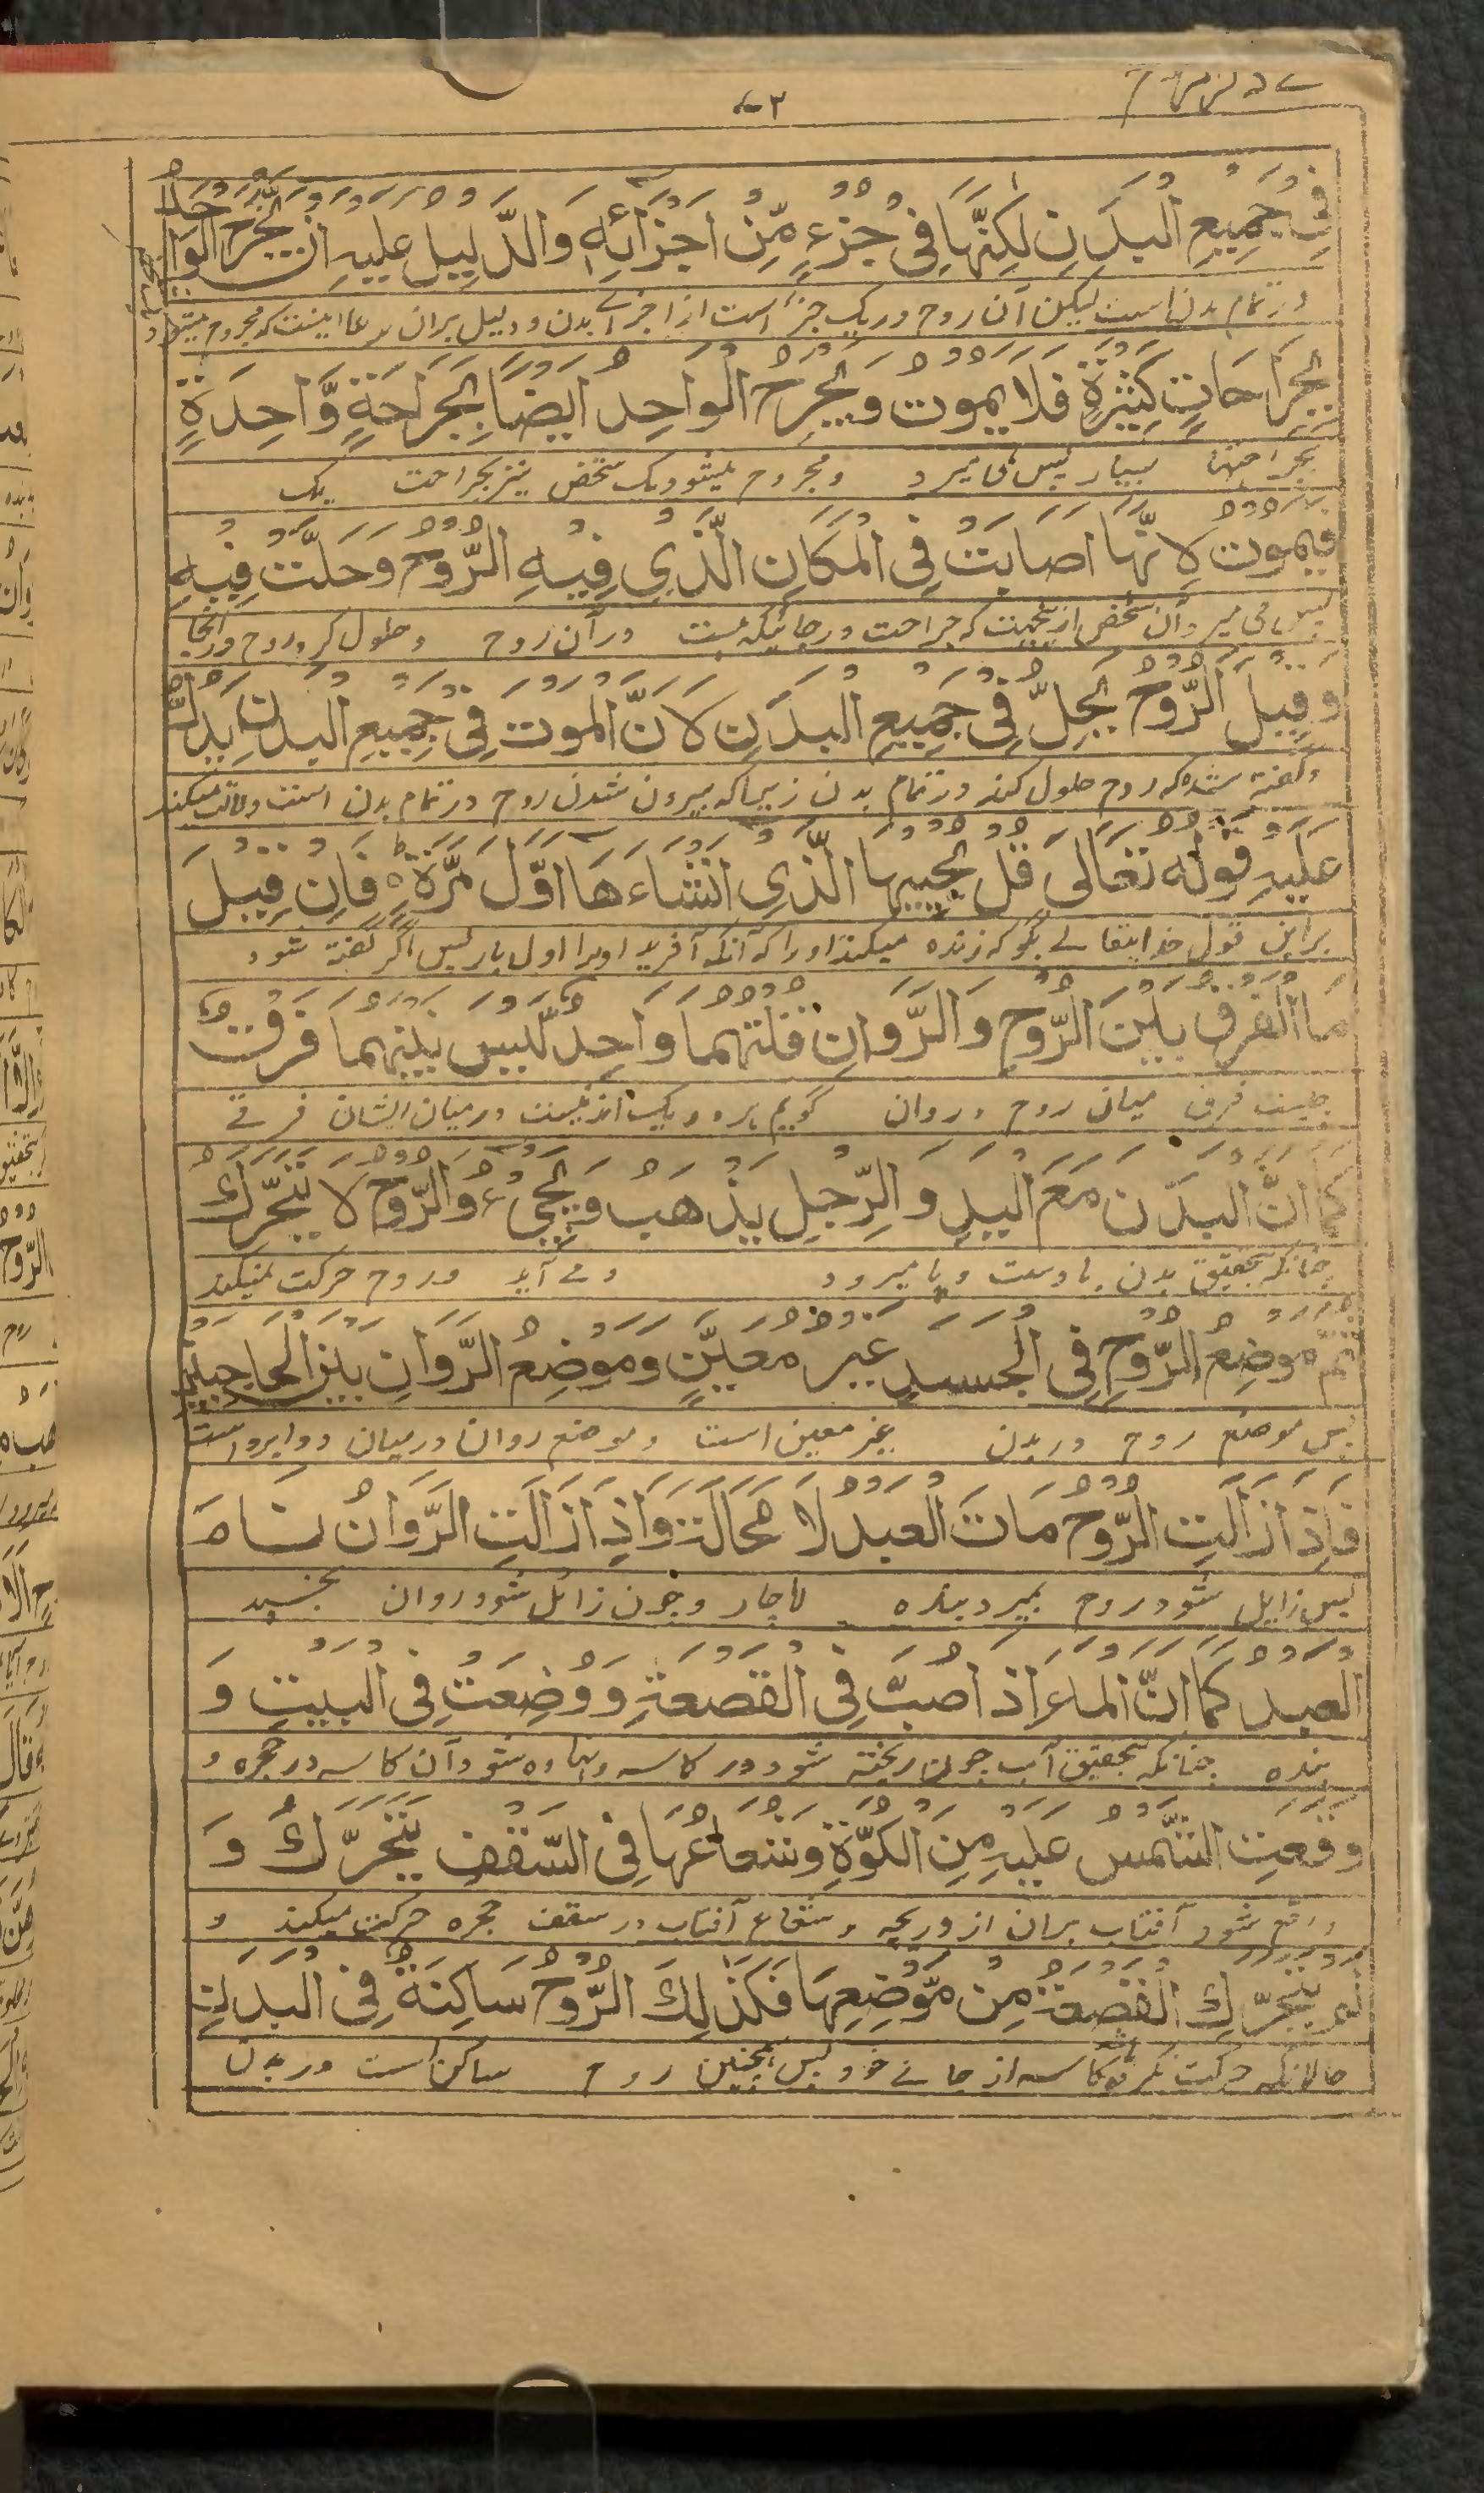 ۷۳
فِیْ جَمِیْعِ الْبَدَنِ لٰكِنَّهَا فِیْ جُزْءٍ مِّنْ اَجْزَائِهٖ وَالدَّلِیْلُ عَلَیْهِ اَنْ یُّجْرَحَ الْوَاحِدُ
در تمام بدن است لیکن آن روح در یک جزء است از اجزائے بدن و دلیل بران مدعا اینست که مجروح میشود
بِجَرَاحَاتٍ كَثِیْرَةٍ فَلَا یَمُوْتُ وَیُجْرَحُ الْوَاحِدُ اَیْضًا بِجَرَاحَةٍ وَّاحِدَةٍ
بجراحتها بسیار پس نمی میرد و مجروح میشود یک شخص نیز بجراحت یک
فَیَمُوْتُ لِاَنَّهَا اَصَابَتْ فِی الْمَكَانِ الَّذِیْ فِیْهِ الرُّوْحُ وَحَلَّتْ فِیْهِ
پس می میرد آن شخص ازینجهت که جراحت در جائیکه هست در آن روح و حلول کرد روح در آنجا
وَقِیْلَ الرُّوْحُ یَحِلُّ فِیْ جَمِیْعِ الْبَدَنِ لِاَنَّ الْمَوْتَ فِیْ جَمِیْعِ الْبَدَنِ یَدُلُّ
و گفته شده که روح حلول کند در تمام بدن زیرا که بیرون شدن روح در تمام بدن است و دلالت میکند
عَلَیْهِ قَوْلُهٗ تَعَالٰی قُلْ یُحْیِیْهَا الَّذِیْ اَنْشَاءَهَا اَوَّلَ مَرَّةٍ ؕ فَاِنْ قِیْلَ
براین قول خدایتعالے بگو که زنده میکند او را که آنکه آفرید او را اول بار پس اگر گفته شود
مَا الْفَرْقُ بَیْنَ الرُّوْحِ وَالرَّوَانِ قُلْتُهُمَا وَاحِدٌ لَّیْسَ بَیْنَهُمَا فَرْقٌ
چیست فرق میان روح و روان گویم هر دو یک اند نیست درمیان ایشان فرقے
كَمَا اَنَّ الْبَدَنَ مَعَ الْیَدِ وَالرِّجْلِ یَذْهَبُ وَیَجِیْءُ وَالرُّوْحُ لَا یَتَحَرَّكُ
چنانکه بتحقیق بدن با دست و پا میرود و مے آید و روح حرکت نمیکند
ثُمَّ مَوْضِعُ الرُّوْحِ فِی الْجَسَدِ غَیْرُ مُعَیَّنٍ وَمَوْضِعُ الرَّوَانِ بَیْنَ الْحَاجِبَیْنِ
پس موضع روح در بدن غیر معین است و موضع روان درمیان دو ابرو است
فَاِذَا زَالَتِ الرُّوْحُ مَاتَ الْعَبْدُ لَا مَحَالَةَ وَاِذَا زَالَتِ الرَّوَانُ نَامَ
پس زایل شود روح بمیرد بنده لاچار و چون زائل شود روان بخسپد
الْعَبْدُ كَمَا اَنَّ الْمَاءَ اِذَا صُبَّ فِی الْقَصْعَةِ وَوُضِعَتْ فِی الْبَیْتِ وَ
بنده چنانکه بتحقیق آب چون ریخته شود در کاسه و نهاده شود آن کاسه در حجره و
وَقَعَتِ الشَّمْسُ عَلَیْهِ مِنَ الْكُوَّةِ وَشُعَاعُهَا فِی السَّقْفِ یَتَحَرَّكُ وَ
واقع شود آفتاب بران از دریچه و شعاع آفتاب در سقف حجره حرکت میکند و
لَمْ یَتَحَرَّكِ الْقَصْعَةُ مِنْ مَّوْضِعِهَا فَكَذٰلِكَ الرُّوْحُ سَاكِنَةٌ فِی الْبَدَنِ
حالانکه حرکت نکرده کاسه از جائے خود پس همچنین روح ساکن است در بدن